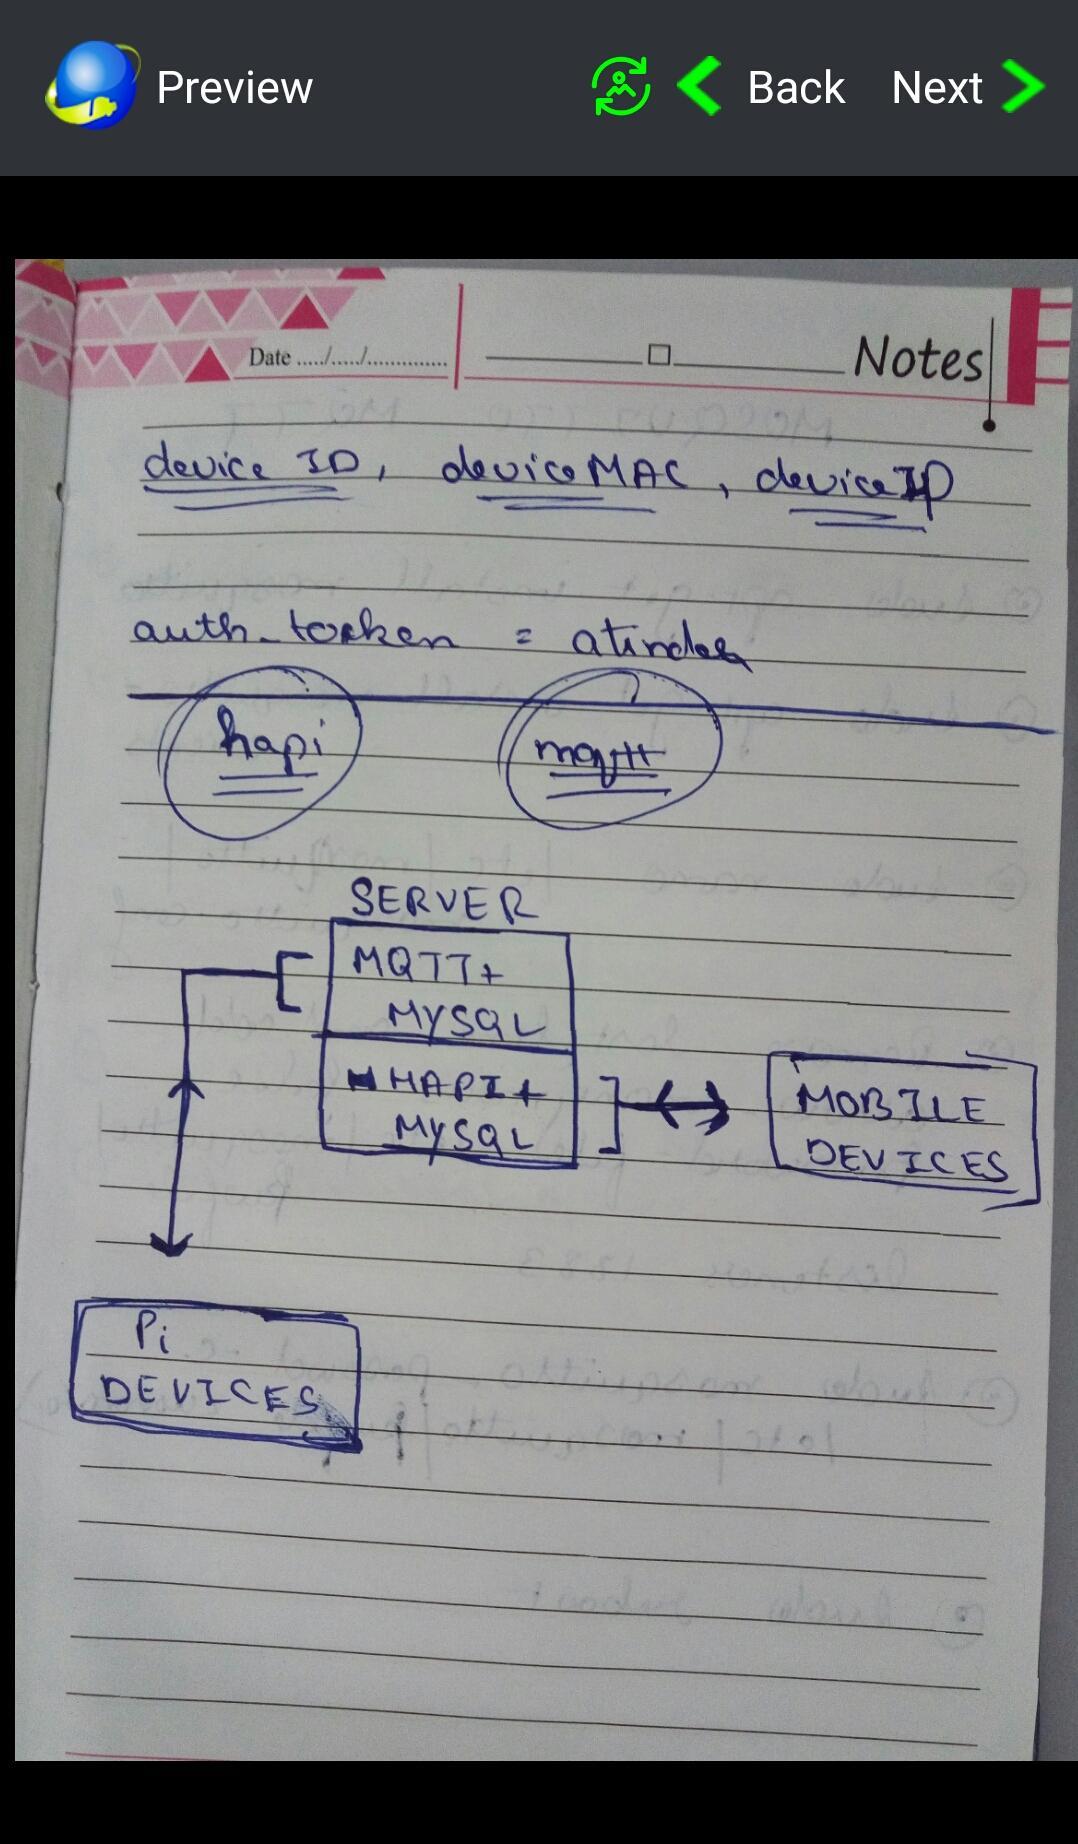 Preview Back Next
Date ...../...../.............. Notes
device ID, device MAC, device IP
auth_tocken =
hapi mqtt
SERVER
MQTT+
MYSQL
HAPI+
MYSQL
MOBILE
DEVICES
Pi
DEVICES